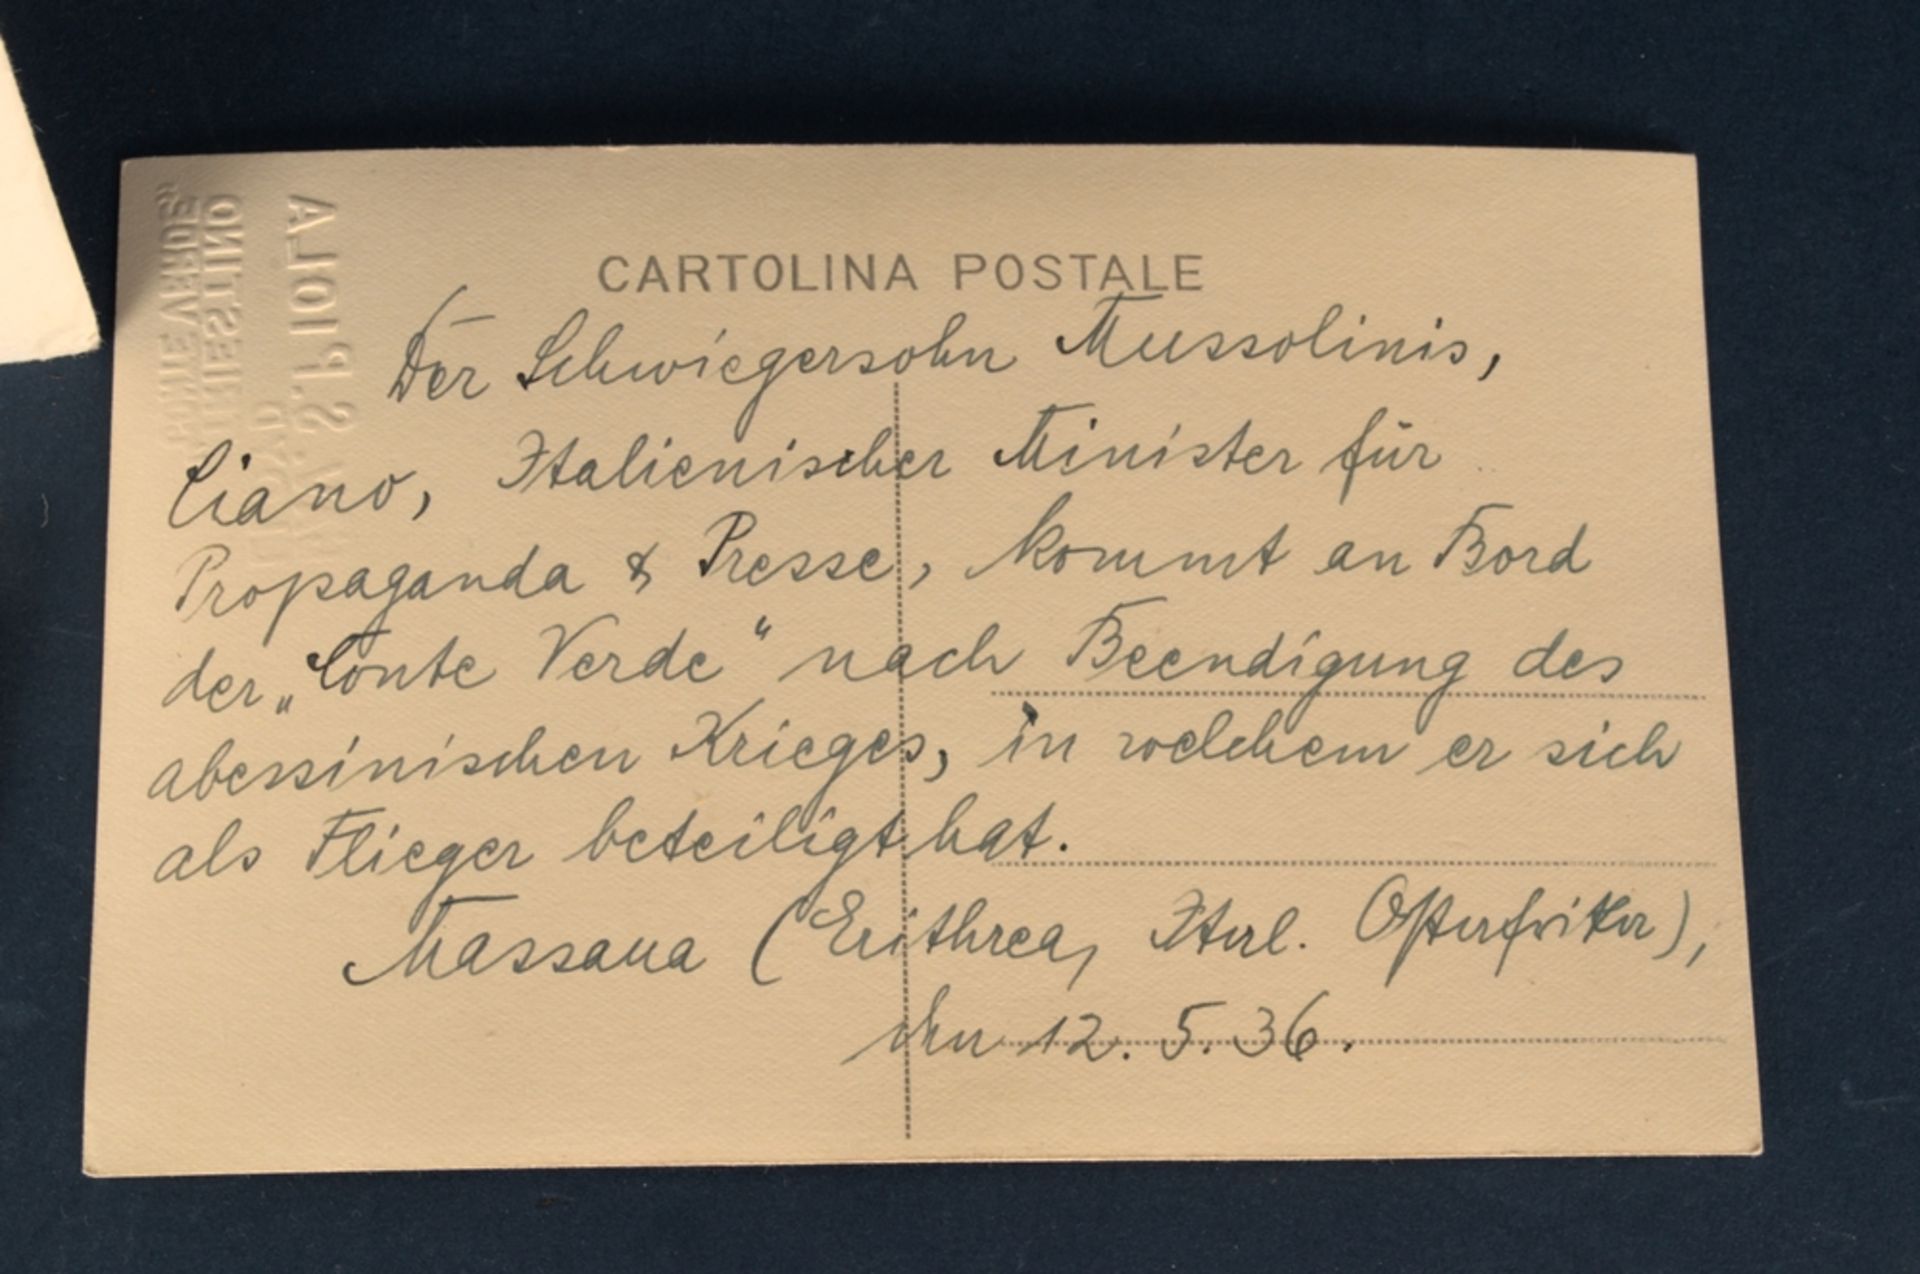 CARTOLINA POSTALE
Der Schwiegersohn Mussolinis,
Ciano, Italienischer Minister für
Propaganda & Presse, kommt an Bord
der „Conte Verde“ nach Beendigung des
abessinischen Krieges, in welchem er sich
als Flieger beteiligt hat.
Massaua (Erithrea, Ital. Ostafrika),
den 12.5.36.
S. PIOLA
TRIESTINO
"CONTE VERDE"